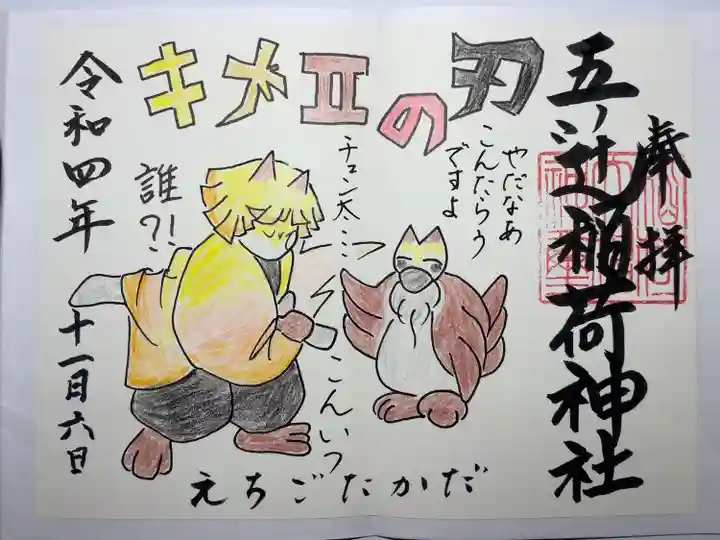 奉拝
五ノ辻稲荷神社
キメエの刃
やだなあ
こんたろう
ですよ
チュン太…
誰?!
こんいつ
えちごたかだ
令和四年
十一日六日